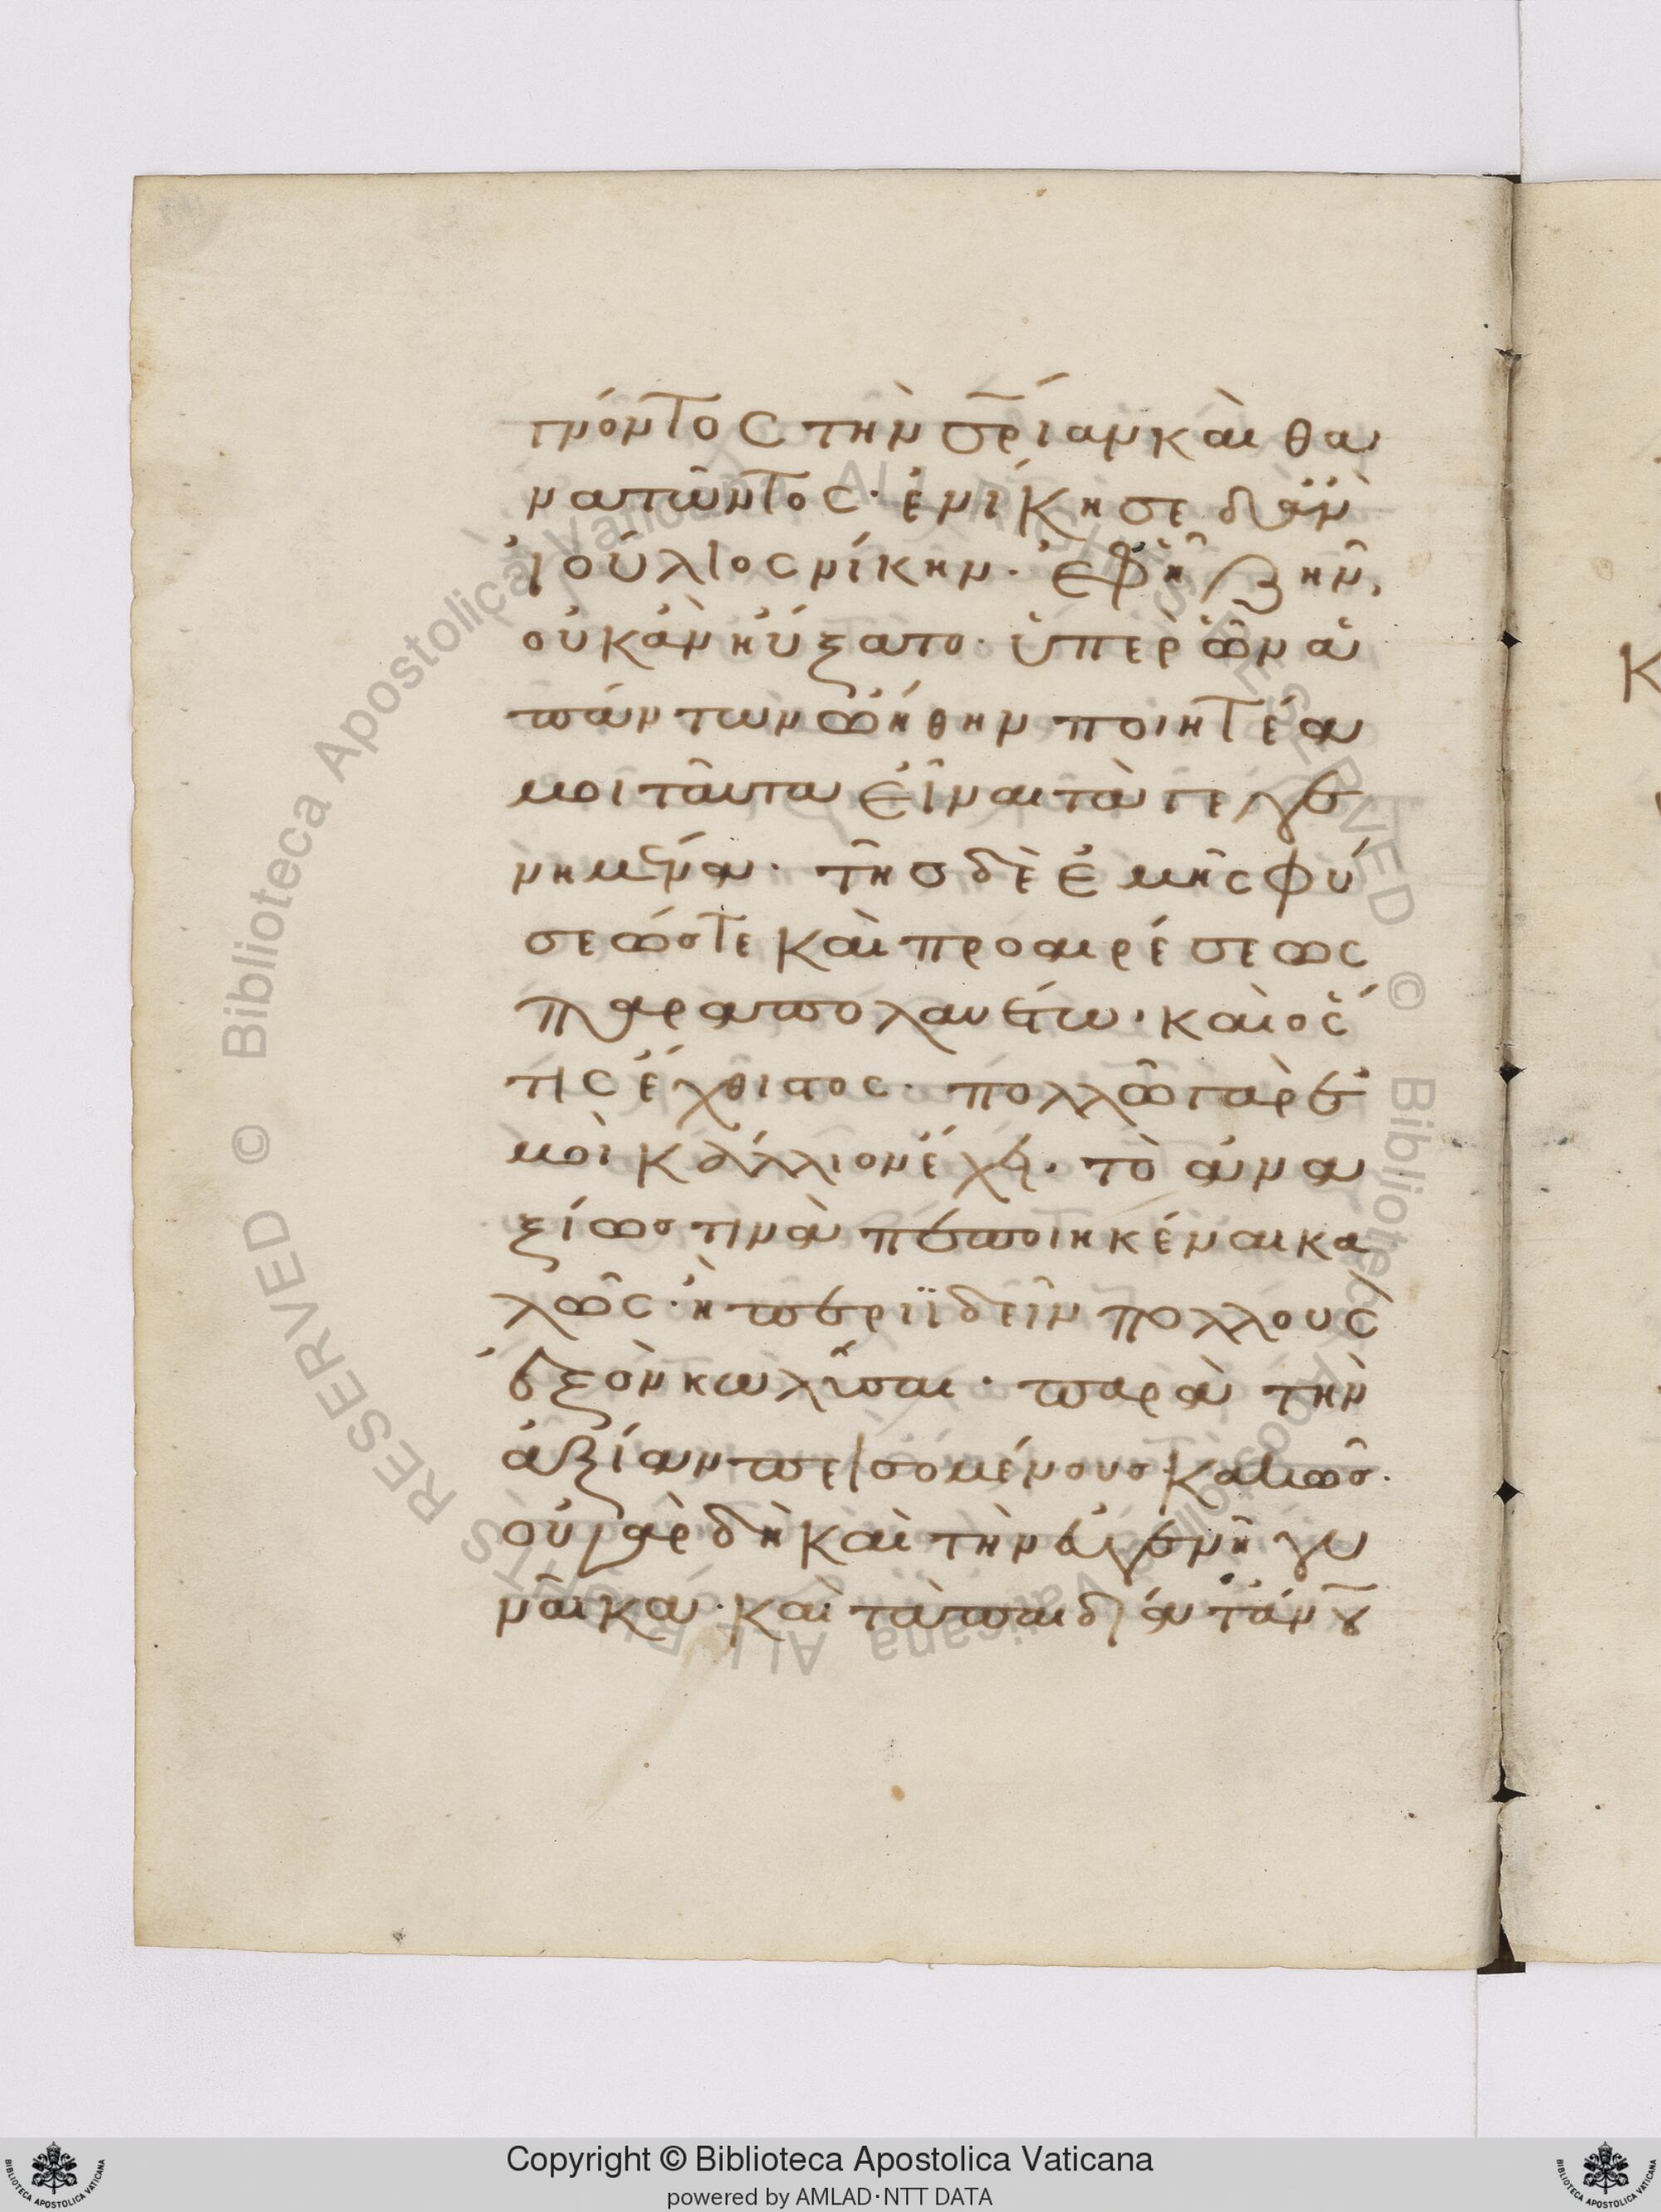 πνόντος τὴν σρίαν καὶ θα
νατῶντος· ἐνίκησε δ' ἂν
ἰούλιος νίκην· ἐφ' ᾗ ζῆν,
οὐκ ἂν ηὔξατο· ὑπὲρ ὧν ἁ
πάντων ᾠήθην ποιητέα
μοι ταῦτα εἶναι τὰ γεγε
νημένα· τῆς δὲ ἐμῆς φύ
σεώς τε καὶ προαιρέσεως
παραπολαυέτω· καὶ ὅς
τις ἔχθιστος· πολλῷ γὰρ ἐ
μοὶ κάλλιον ἔχει· τὸ ἀνα
ξίως τινὰ πεποιηκέναι κα
λῶς· ἢ περιϊδεῖν πολλοὺς
ἐξὸν κωλῦσαι· παρὰ τὴν
ἀξίαν πεισομένους κακῶς·
οὐ γὰρ δὴ καὶ τὴν εὐγενῆ γυ
ναῖκα· καὶ τὰ παιδία τἀνου
Copyright © Biblioteca Apostolica Vaticana
powered by AMLAD·NTT DATA